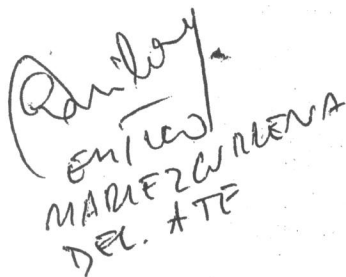 EMILIO
MARIEZCURRENA
DEL. ATE